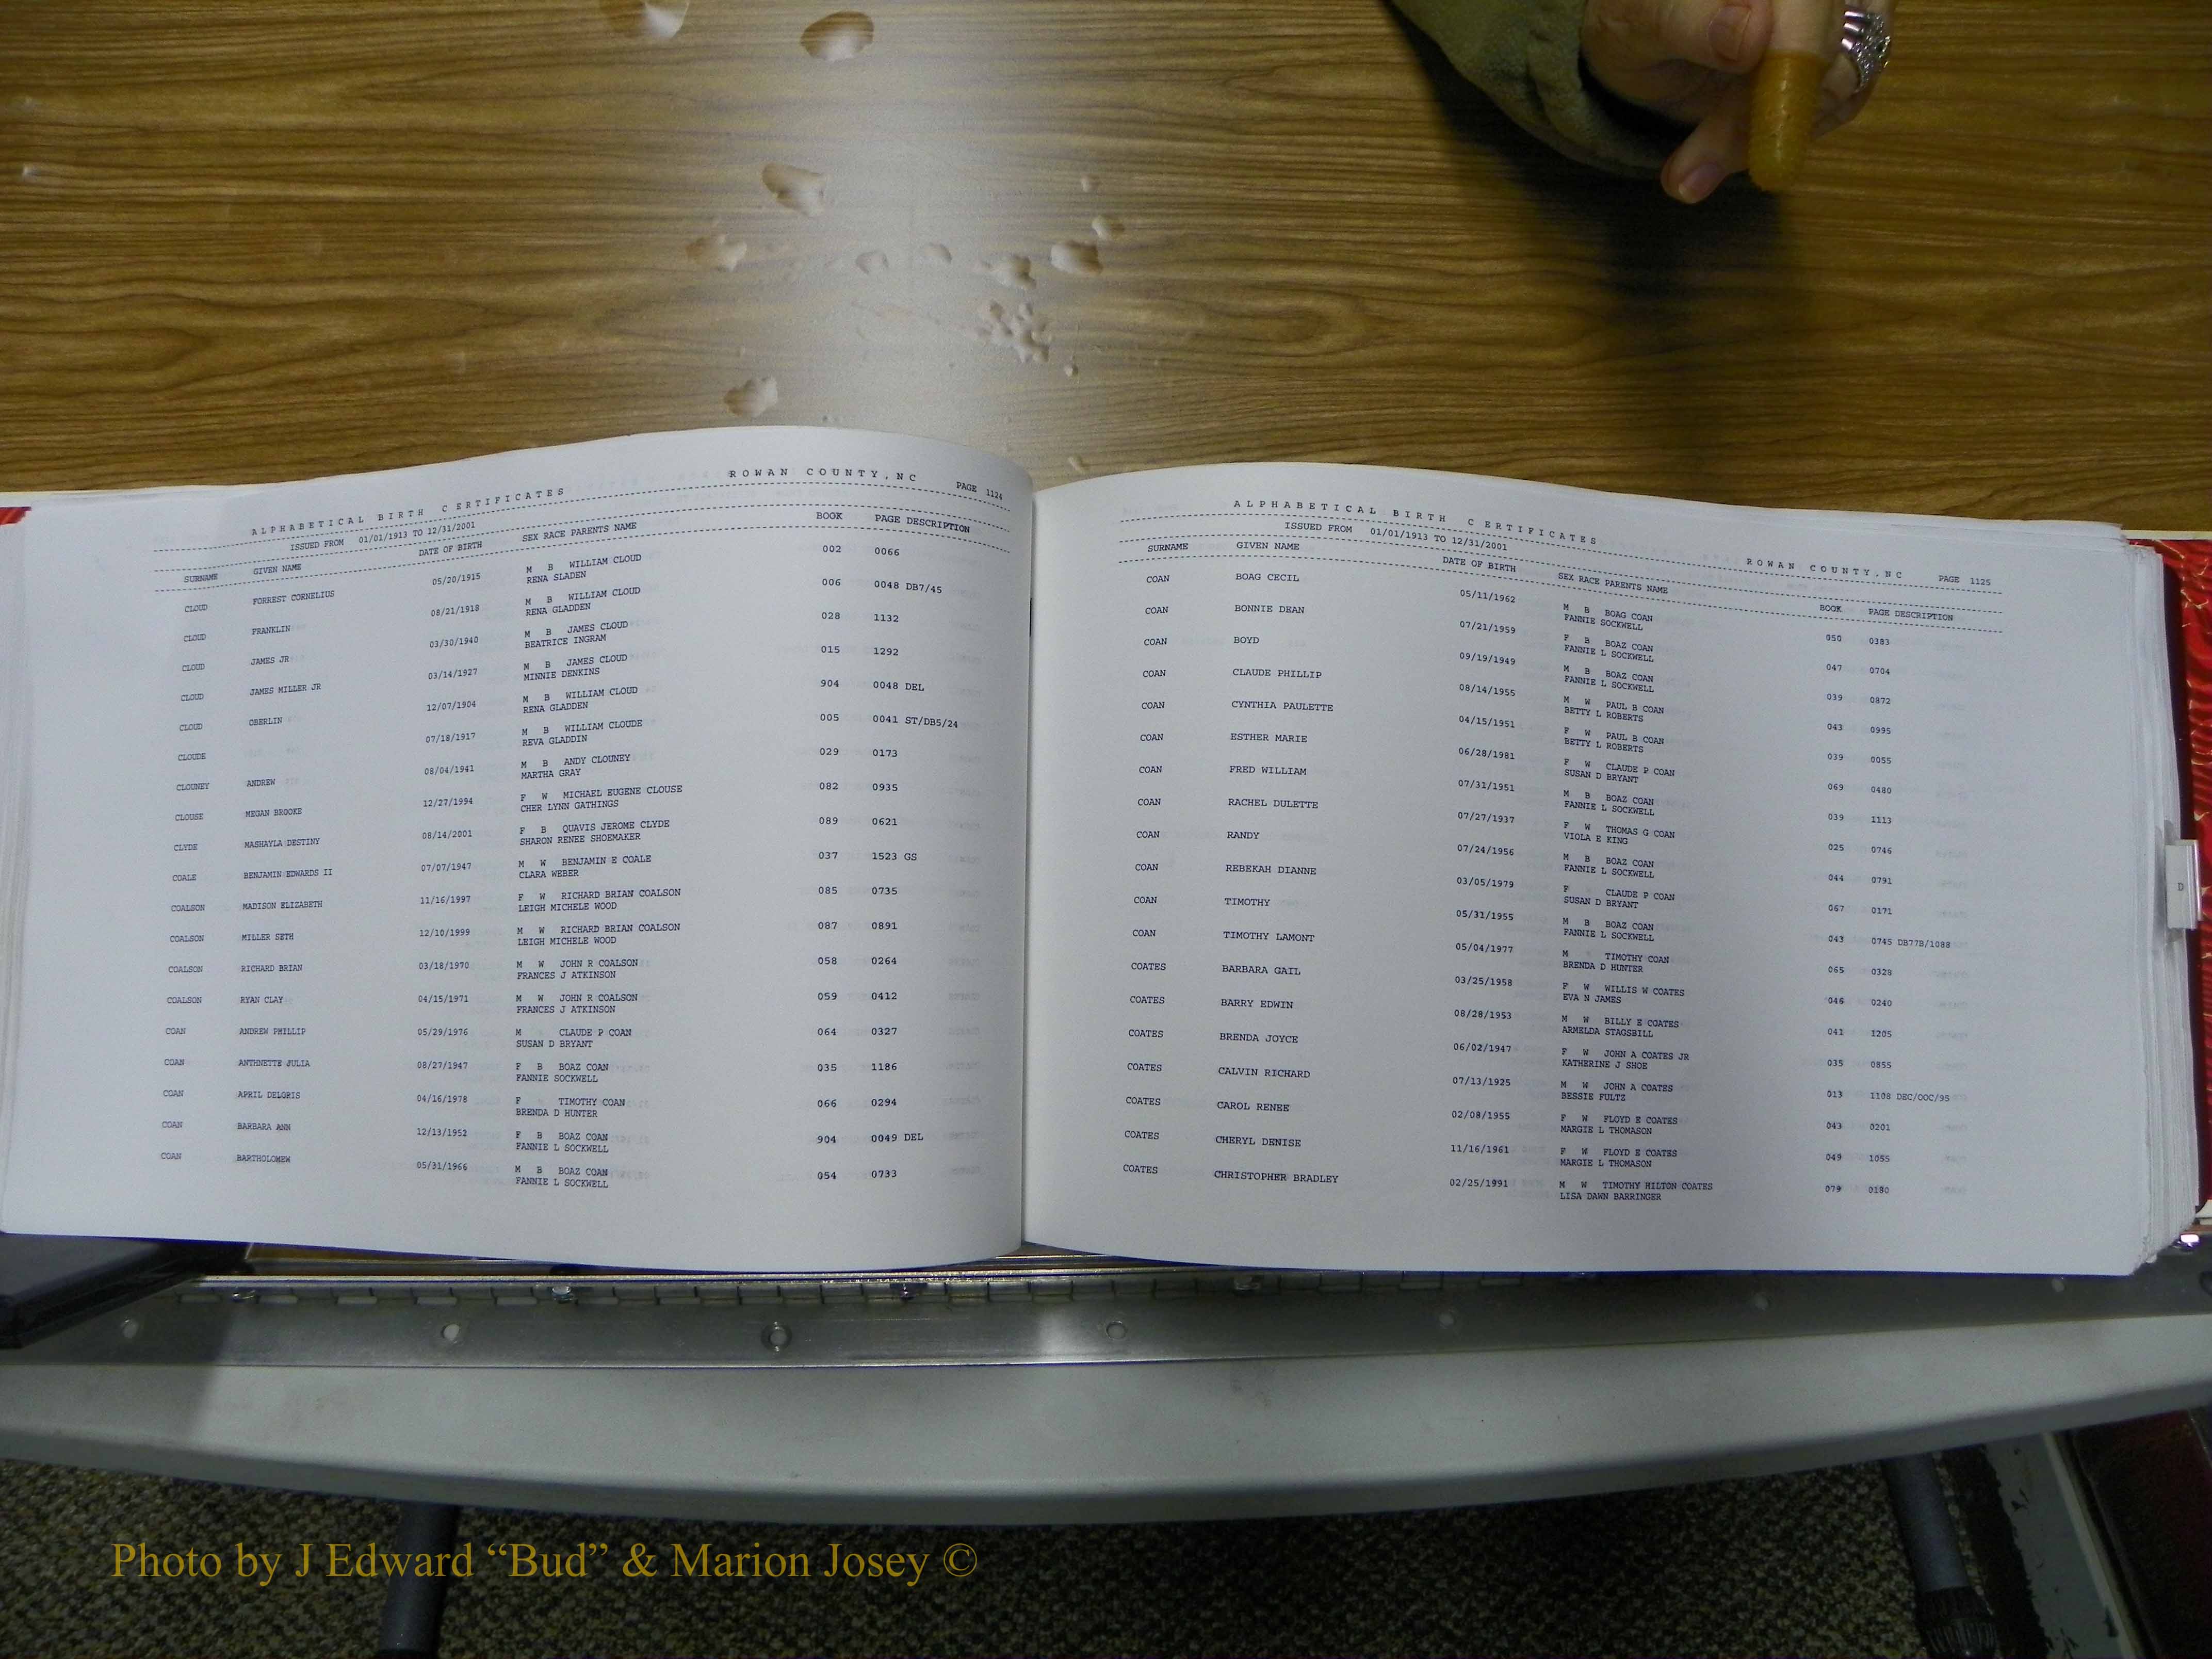 ALPHABETICAL BIRTH CERTIFICATES ROWAN COUNTY,NC PAGE 1124
ISSUED FROM 01/01/1913 TO 12/31/2001
SURNAME GIVEN NAME DATE OF BIRTH SEX RACE PARENTS NAME BOOK PAGE DESCRIPTION
CLOUD FORREST CORNELIUS 05/20/1915 M B WILLIAM CLOUD 002 0066
RENA SLADEN
CLOUD FRANKLIN 08/21/1918 M B WILLIAM CLOUD 006 0048 DB7/45
RENA GLADDEN
CLOUD JAMES JR 03/30/1940 M B JAMES CLOUD 028 1132
BEATRICE INGRAM
CLOUD JAMES MILLER JR 03/14/1927 M B JAMES CLOUD 015 1292
MINNIE DENKINS
CLOUD OBERLIN 12/07/1904 M B WILLIAM CLOUD 904 0048 DEL
RENA GLADDEN
CLOUDE 07/18/1917 M B WILLIAM CLOUDE 005 0041 ST/DB5/24
REVA GLADDIN
CLOUNEY ANDREW 08/04/1941 M B ANDY CLOUNEY 029 0173
MARTHA GRAY
CLOUSE MEGAN BROOKE 12/27/1994 F W MICHAEL EUGENE CLOUSE 082 0935
CHER LYNN GATHINGS
CLYDE MASHAYLA DESTINY 08/14/2001 F B QUAVIS JEROME CLYDE 089 0621
SHARON RENEE SHOEMAKER
COALE BENJAMIN EDWARDS II 07/07/1947 M W BENJAMIN E COALE 037 1523 GS
CLARA WEBER
COALSON MADISON ELIZABETH 11/16/1997 F W RICHARD BRIAN COALSON 085 0735
LEIGH MICHELE WOOD
COALSON MILLER SETH 12/10/1999 M W RICHARD BRIAN COALSON 087 0891
LEIGH MICHELE WOOD
COALSON RICHARD BRIAN 03/18/1970 M W JOHN R COALSON 058 0264
FRANCES J ATKINSON
COALSON RYAN CLAY 04/15/1971 M W JOHN R COALSON 059 0412
FRANCES J ATKINSON
COAN ANDREW PHILLIP 05/29/1976 M CLAUDE P COAN 064 0327
SUSAN D BRYANT
COAN ANTHNETTE JULIA 08/27/1947 F B BOAZ COAN 035 1186
FANNIE SOCKWELL
COAN APRIL DELORIS 04/16/1978 F TIMOTHY COAN 066 0294
BRENDA D HUNTER
COAN BARBARA ANN 12/13/1952 F B BOAZ COAN 904 0049 DEL
FANNIE L SOCKWELL
COAN BARTHOLOMEW 05/31/1966 M B BOAZ COAN 054 0733
FANNIE L SOCKWELL
ALPHABETICAL BIRTH CERTIFICATES ROWAN COUNTY,NC PAGE 1125
ISSUED FROM 01/01/1913 TO 12/31/2001
SURNAME GIVEN NAME DATE OF BIRTH SEX RACE PARENTS NAME BOOK PAGE DESCRIPTION
COAN BOAG CECIL 05/11/1962 M B BOAG COAN 050 0383
FANNIE SOCKWELL
COAN BONNIE DEAN 07/21/1959 F B BOAZ COAN 047 0704
FANNIE L SOCKWELL
COAN BOYD 09/19/1949 M B BOAZ COAN 039 0872
FANNIE L SOCKWELL
COAN CLAUDE PHILLIP 08/14/1955 M W PAUL B COAN 043 0995
BETTY L ROBERTS
COAN CYNTHIA PAULETTE 04/15/1951 F W PAUL B COAN 039 0055
BETTY L ROBERTS
COAN ESTHER MARIE 06/28/1981 F W CLAUDE P COAN 069 0480
SUSAN D BRYANT
COAN FRED WILLIAM 07/31/1951 M B BOAZ COAN 039 1113
FANNIE L SOCKWELL
COAN RACHEL DULETTE 07/27/1937 F W THOMAS G COAN 025 0746
VIOLA E KING
COAN RANDY 07/24/1956 M B BOAZ COAN 044 0791
FANNIE L SOCKWELL
COAN REBEKAH DIANNE 03/05/1979 F CLAUDE P COAN 067 0171
SUSAN D BRYANT
COAN TIMOTHY 05/31/1955 M B BOAZ COAN 043 0745 DB77B/1088
FANNIE L SOCKWELL
COAN TIMOTHY LAMONT 05/04/1977 M TIMOTHY COAN 065 0328
BRENDA D HUNTER
COATES BARBARA GAIL 03/25/1958 F W WILLIS W COATES 046 0240
EVA N JAMES
COATES BARRY EDWIN 08/28/1953 M W BILLY E COATES 041 1205
ARMELDA STAGSBILL
COATES BRENDA JOYCE 06/02/1947 F W JOHN A COATES JR 035 0855
KATHERINE J SHOE
COATES CALVIN RICHARD 07/13/1925 M W JOHN A COATES 013 1108 DEC/OOC/95
BESSIE FULTZ
COATES CAROL RENEE 02/08/1955 F W FLOYD E COATES 043 0201
MARGIE L THOMASON
COATES CHERYL DENISE 11/16/1961 F W FLOYD E COATES 049 1055
MARGIE L THOMASON
COATES CHRISTOPHER BRADLEY 02/25/1991 M W TIMOTHY HILTON COATES 079 0180
LISA DAWN BARRINGER
D
Photo by J Edward “Bud” & Marion Josey ©